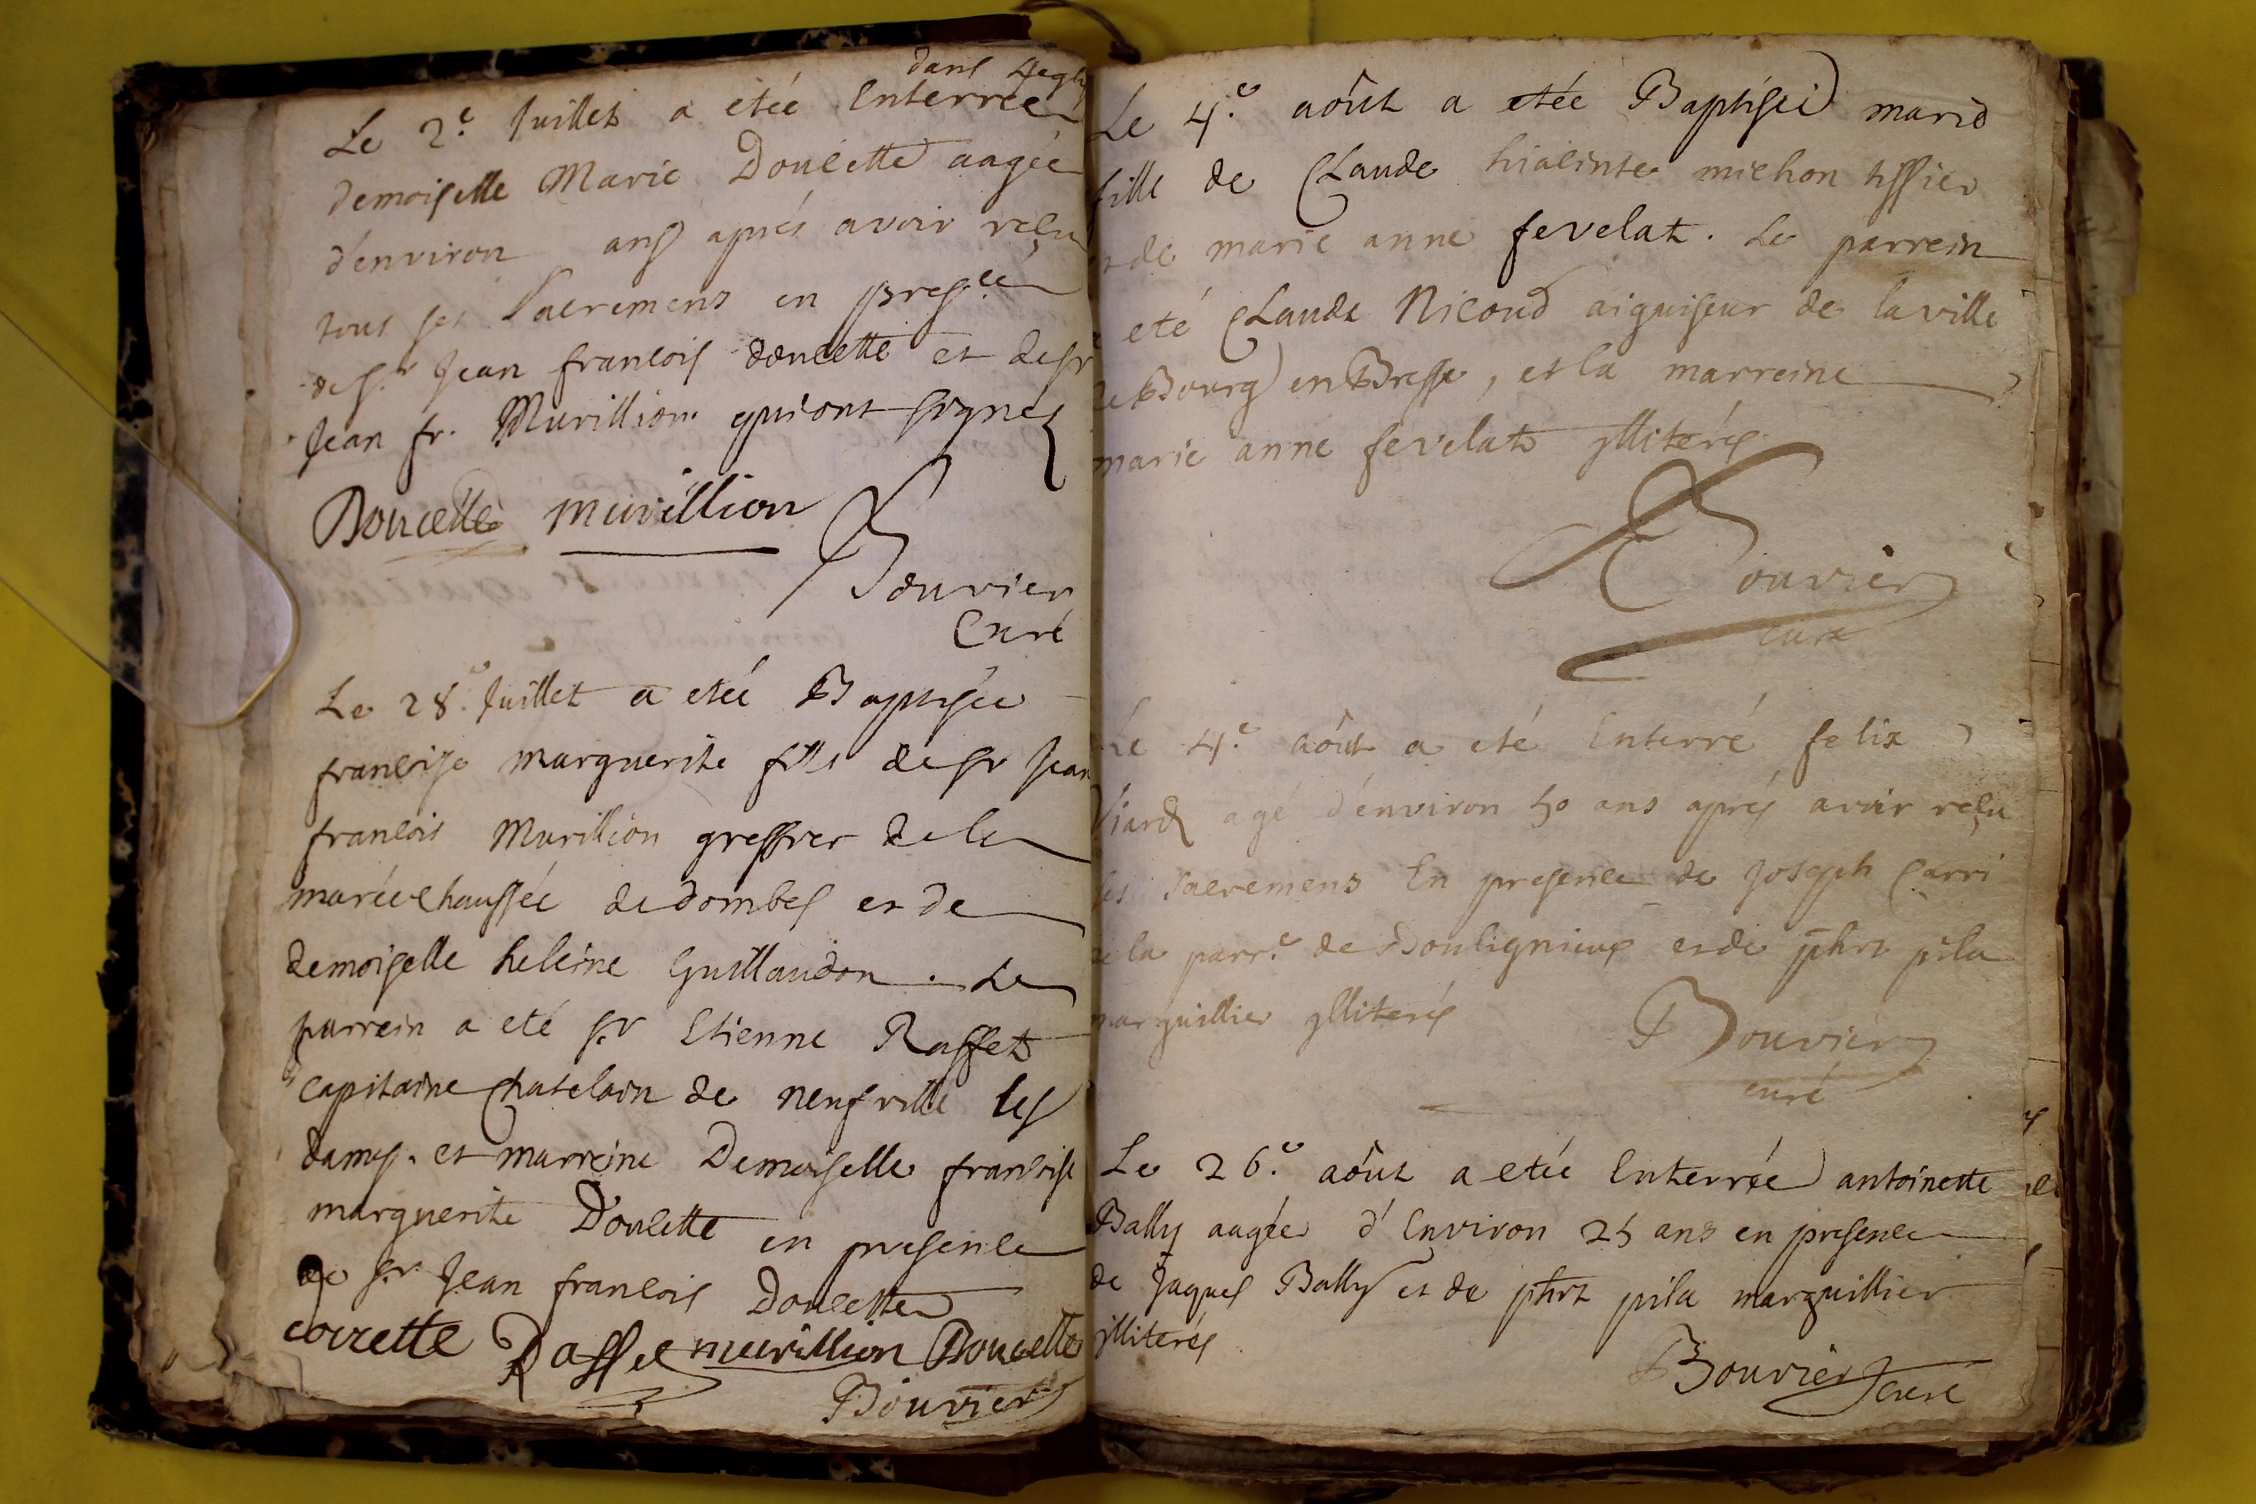 dans
Le 2.e Juillet a etée Enterrée
demoiselle Marie Doucette aagée
d'environ ans aprés avoir reçu
tous ses Sacremens en presce
de sr Jean francois doucette et de sr
Jean fr. Murillion qui ont signés
Doucette murillion
Bouvier
Curé
Le 28.e Juillet a etée Baptisée
francoise marguerite de sr Jean
francois Murillion greffier de la
maréechaussée de dombes et de
demoiselle heleine Guillaudon. Le
parrein a eté sr Etienne Raffet
capitaine Chatelain de neufville les
dames. et marreine Demoiselle francoise
marguerite Doucette en presence
de sr Jean francois Doucette
Raffet murillion Doucette
Bouvier
Le 4.e aôut a etée Baptisée marie
fille de Claude hiacinte michon tissier
et de marie anne fevelat. Le parrein
a eté Claude Nicoud aiguiseur de la ville
de Bourg en Bresse, et la marreine
marie anne fevelat ylliterés
Bouvier
curé
Le 4.e aôut a eté Enterré felix
agé d'environ 50 ans aprés avoir reçu
les Sacremens En presence de Joseph Carri
de la parr.e de Bouligneux et de phrt pila
marguillier ylliterés
Bouvier
curé
Le 26.e aôut a etée Enterrée antoinette
Bally aagée d'Environ 25 ans en presence
de Jaques Bally et de phrt pila marguillier
ylliterés
Bouvier curé